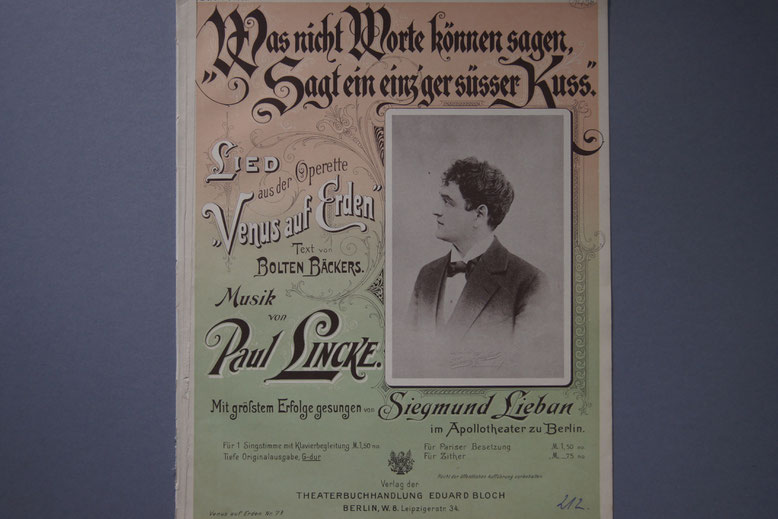 „Was nicht Worte können sagen,
Sagt ein einz'ger süsser Kuss."
LIED
aus der Operette
„Venus auf Erden"
Text von
BOLTEN BÄCKERS.
Musik
von
Paul LINCKE.
Mit größtem Erfolge gesungen von Siegmund Lieban
im Apollotheater zu Berlin.
Für 1 Singstimme mit Klavierbegleitung M. 1,50 no.
Tiefe Originalausgabe, G-dur
Für Pariser Besetzung M. 1,50 no.
Für Zither „M. _,75 no.
Recht der öffentlichen Aufführung vorbehalten
Verlag der
THEATERBUCHHANDLUNG EDUARD BLOCH
BERLIN, W. 8. Leipzigerstr. 34.
Venus auf Erden Nr. 7
212.